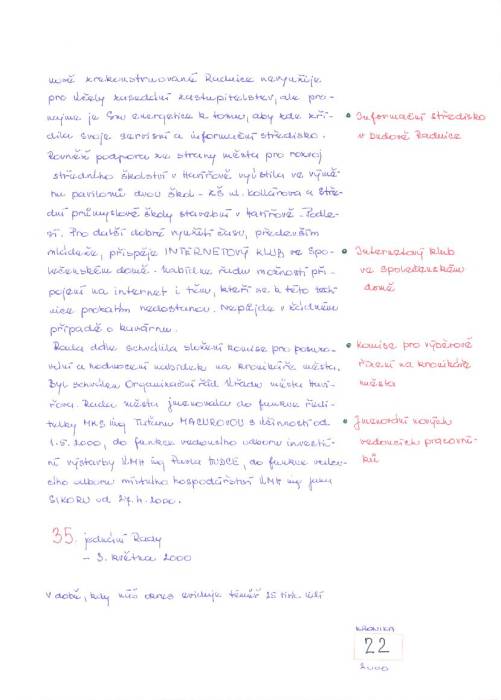 nově zrekonstruované Radnice nevyužije
pro účely zasedání zastupitelstev, ale pro-
najme je Sm energetice k tomu, aby zde zří-
dila svoje servisní a informační středisko.
Rovněž podpora ze strany města pro rozvoj
středního školství v Havířově vyústila ve výmě-
nu pavilonů dvou škol - ZŠ ul. Kollárova a Stře-
dní průmyslové školy stavební v Havířově - Podle-
sí. Pro další dobré využití času, především
mládeže, přispěje INTERNETOVÝ KLUB ve Spo-
lečenském domě. Nabídne řadu možností při-
pojení na internet i těm, kteří se k této tech-
nice prozatím nedostanou. Nepůjde v žádném
případě o kavárnu.
Rada dále schválila složení komise pro posuzo-
vání a hodnocení nabídek na kronikáře města.
Byl schválen Organizační řád Úřadu města Haví-
řova. Rada města jmenovala do funkce ředi-
telky MKS ing. Taťanu MACUROVOU s účinností od
1.5.2000, do funkce vedoucího odboru investi-
ční výstavby ÚMH ing. Pavla, do funkce vedou-
cího odboru místního hospodářství ÚMH ing. Jana
SIKORU od 27.4.2000.
• Informační středisko
v budově Radnice
• Internetový klub
ve Společenském
domě
• Komise pro výběrové
řízení na kronikáře
města
• Jmenování nových
vedoucích pracovní-
ků
35. jednání Rady
– 3. května 2000
V době, kdy náš okres eviduje téměř 25 tis. lidí
KRONIKA
22
2000